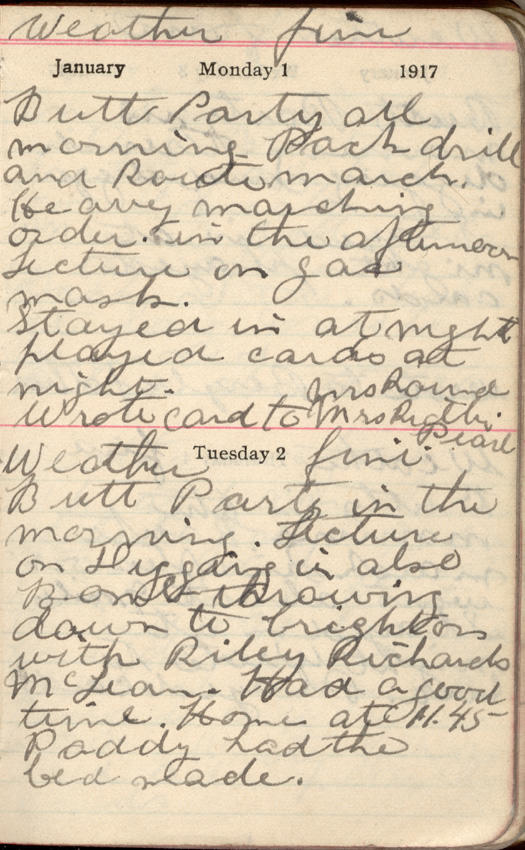 Weather fine
January Monday 1 1917
Butt Party all
morning Pack drill
and Route march.
Heavey marching
order. in the afternoon
Lecture on gas
mask.
Stayed in at night
played cards at
night. Mrs Round
Wrote card to Mrs
Pearl
Weather Tuesday 2 fine
Butt Party in the
morning. Lecture
on Digging in also
Bomb throwing
down to brighton
with Riley Richards
McLean. Had a good
time. Home at 11.45
Paddy had the
bed made.